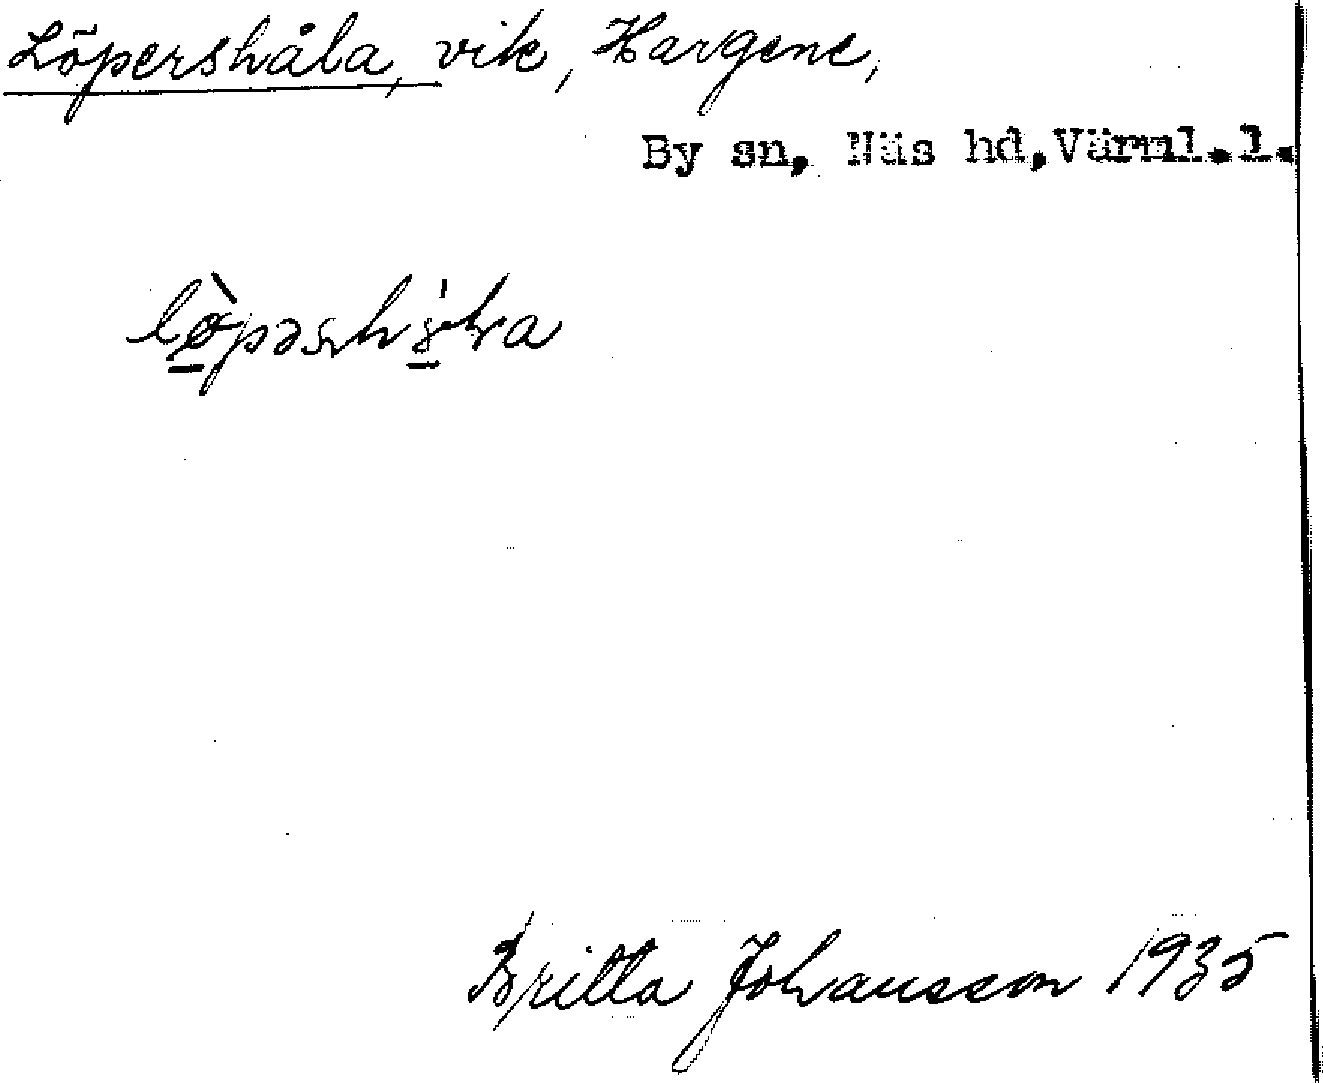 Löpershåla, vik, Hargene,
By sn, Näs hd, Värml.l.
Britta Johansson 1935